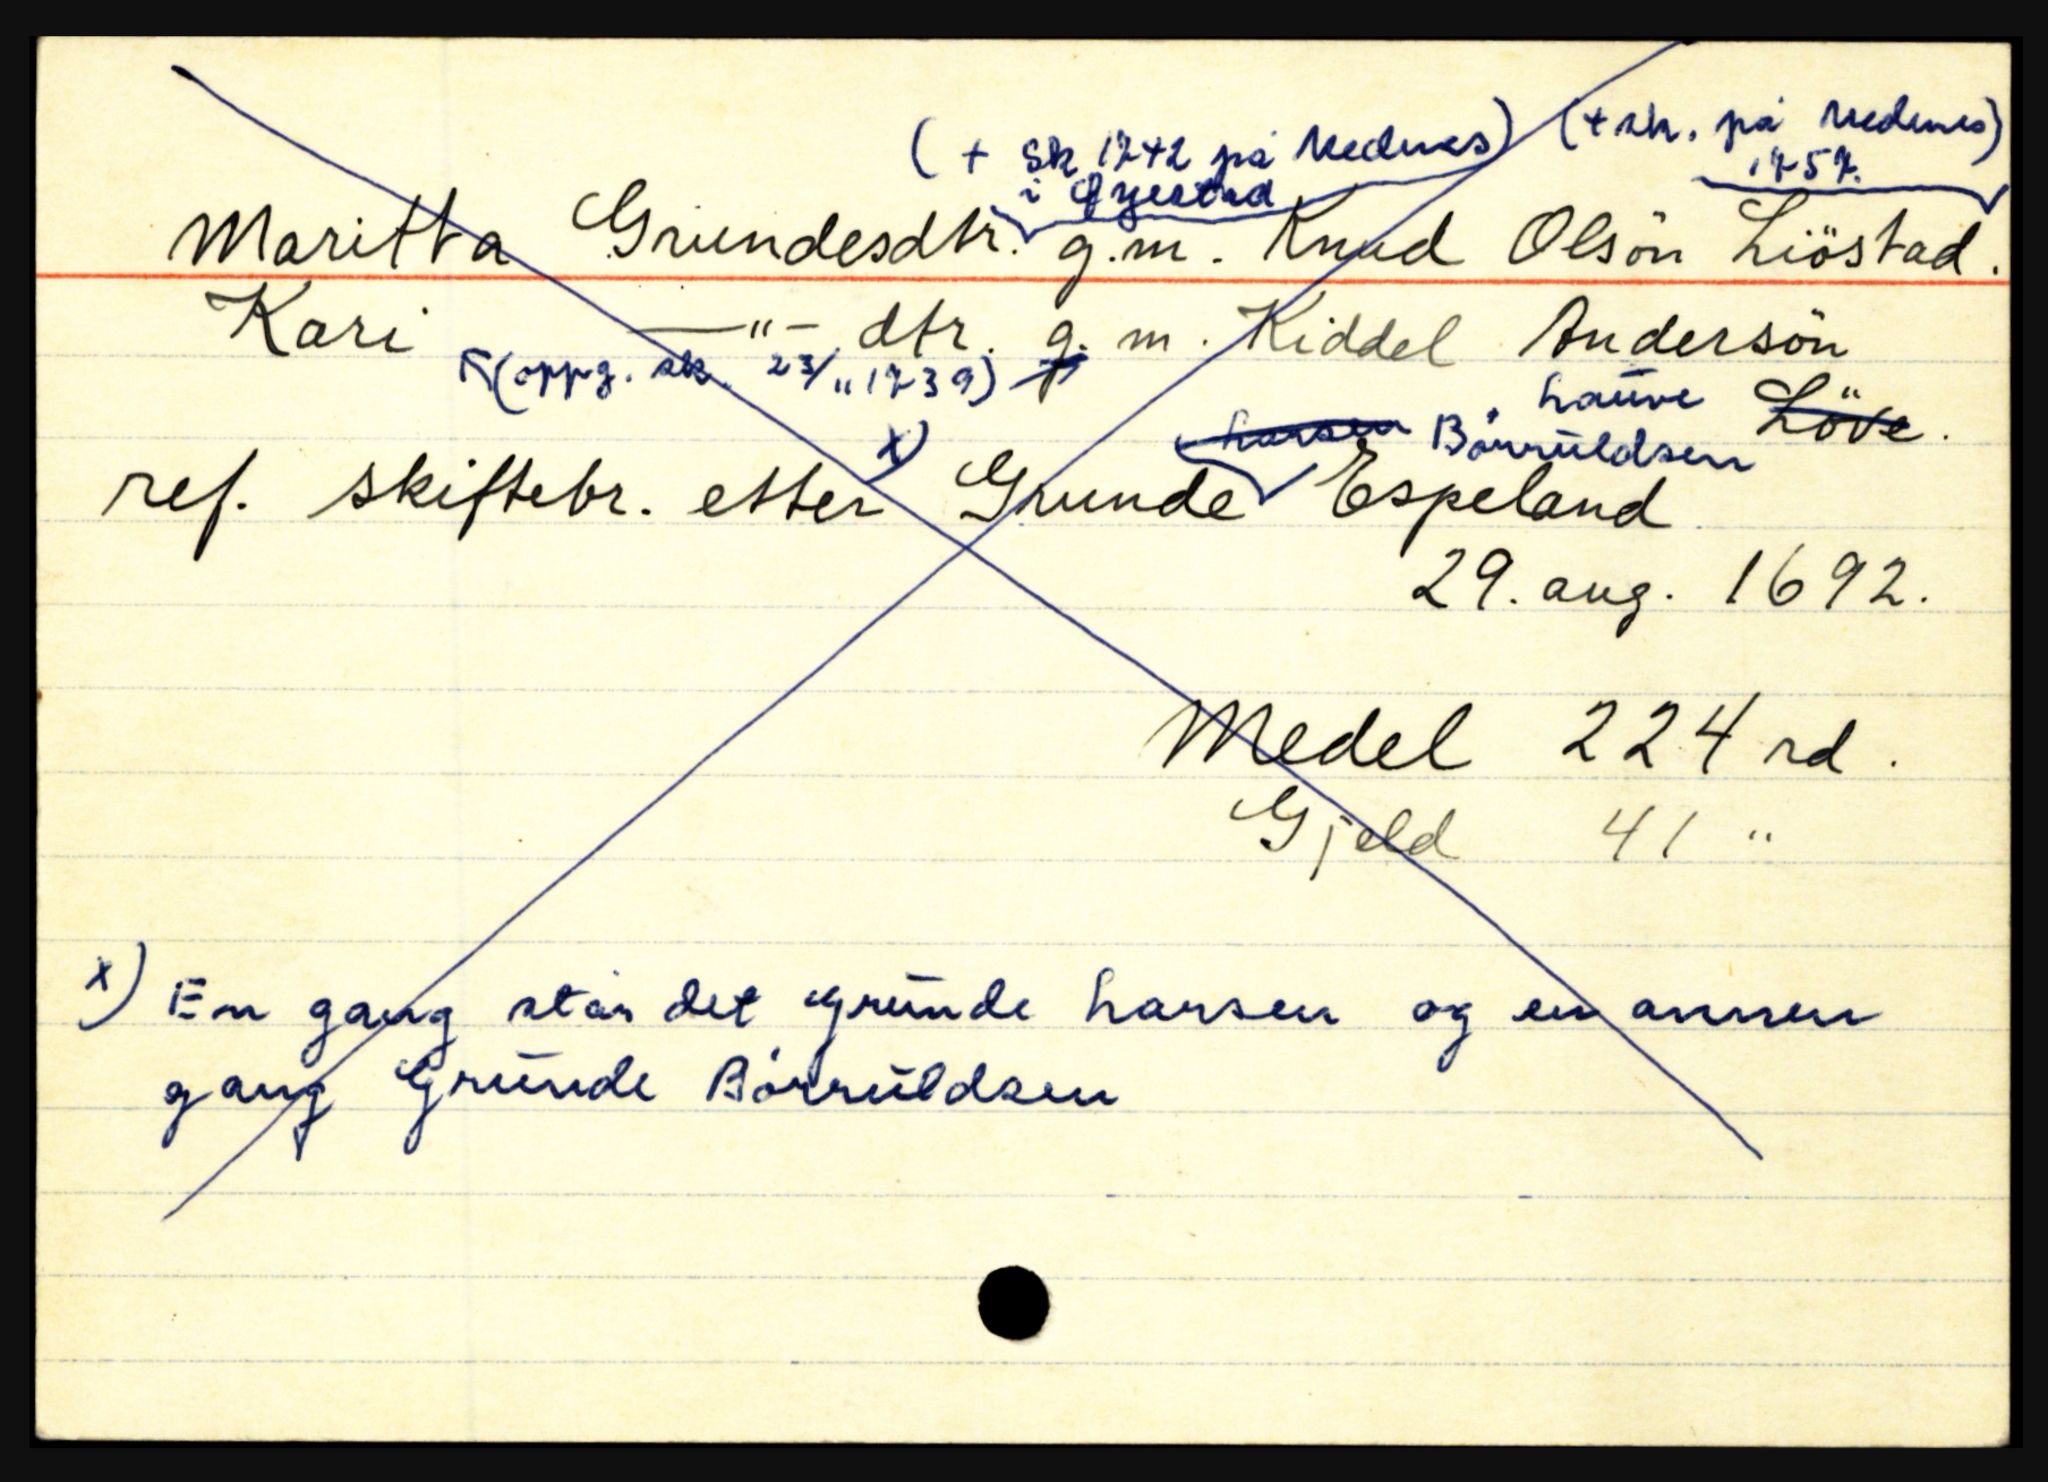 ( + sk 1742 på Nedenes) (+ sk. på Nedenes)
i Øyestad 1757.
Maritta Grundesdtr. g.m. Knud Olsön Liöstad.
Kari —"— dtr. g.m. Kiddel Andersön
(oppg. sk. 23/11 1739) Lauve Löve.
x) Larsen Börruldsen
ref. skiftebr. etter Grunde Espeland
29. aug. 1692.
Medel 224 rd.
Gjeld 41 "
x) En gang står det Grunde Larsen og en annen
gang Grunde Börruldsen